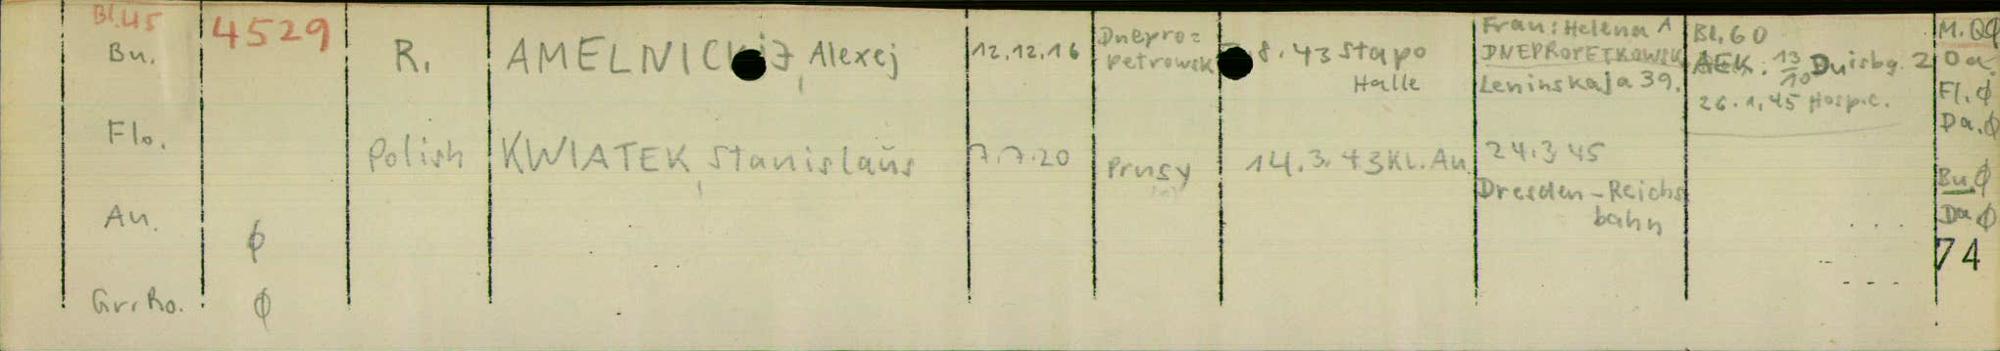 Bl.45
Bu. 4529 R. AMELNICKIJ, Alexej 12.12.16 Dnepro= petrowsk 8.43 Stapo Halle
Frau: Helena A
DNEPROPETROWSK
Leninskaja 39.
Bl. 60
AEK: 13/10 Duisbg. 2
26.1.45 Hosp.c.
M.
Da.
Fl. ϕ
Da. ϕ
Flo. Polish KWIATEK, Stanislaŭs 7.7.20 Prusy 14.3.43 KL. Au. 24.3.45
Dresden-Reichs
bahn
Bu. ϕ
Da ϕ
74
Au. ϕ
Gr.Ro. ϕ